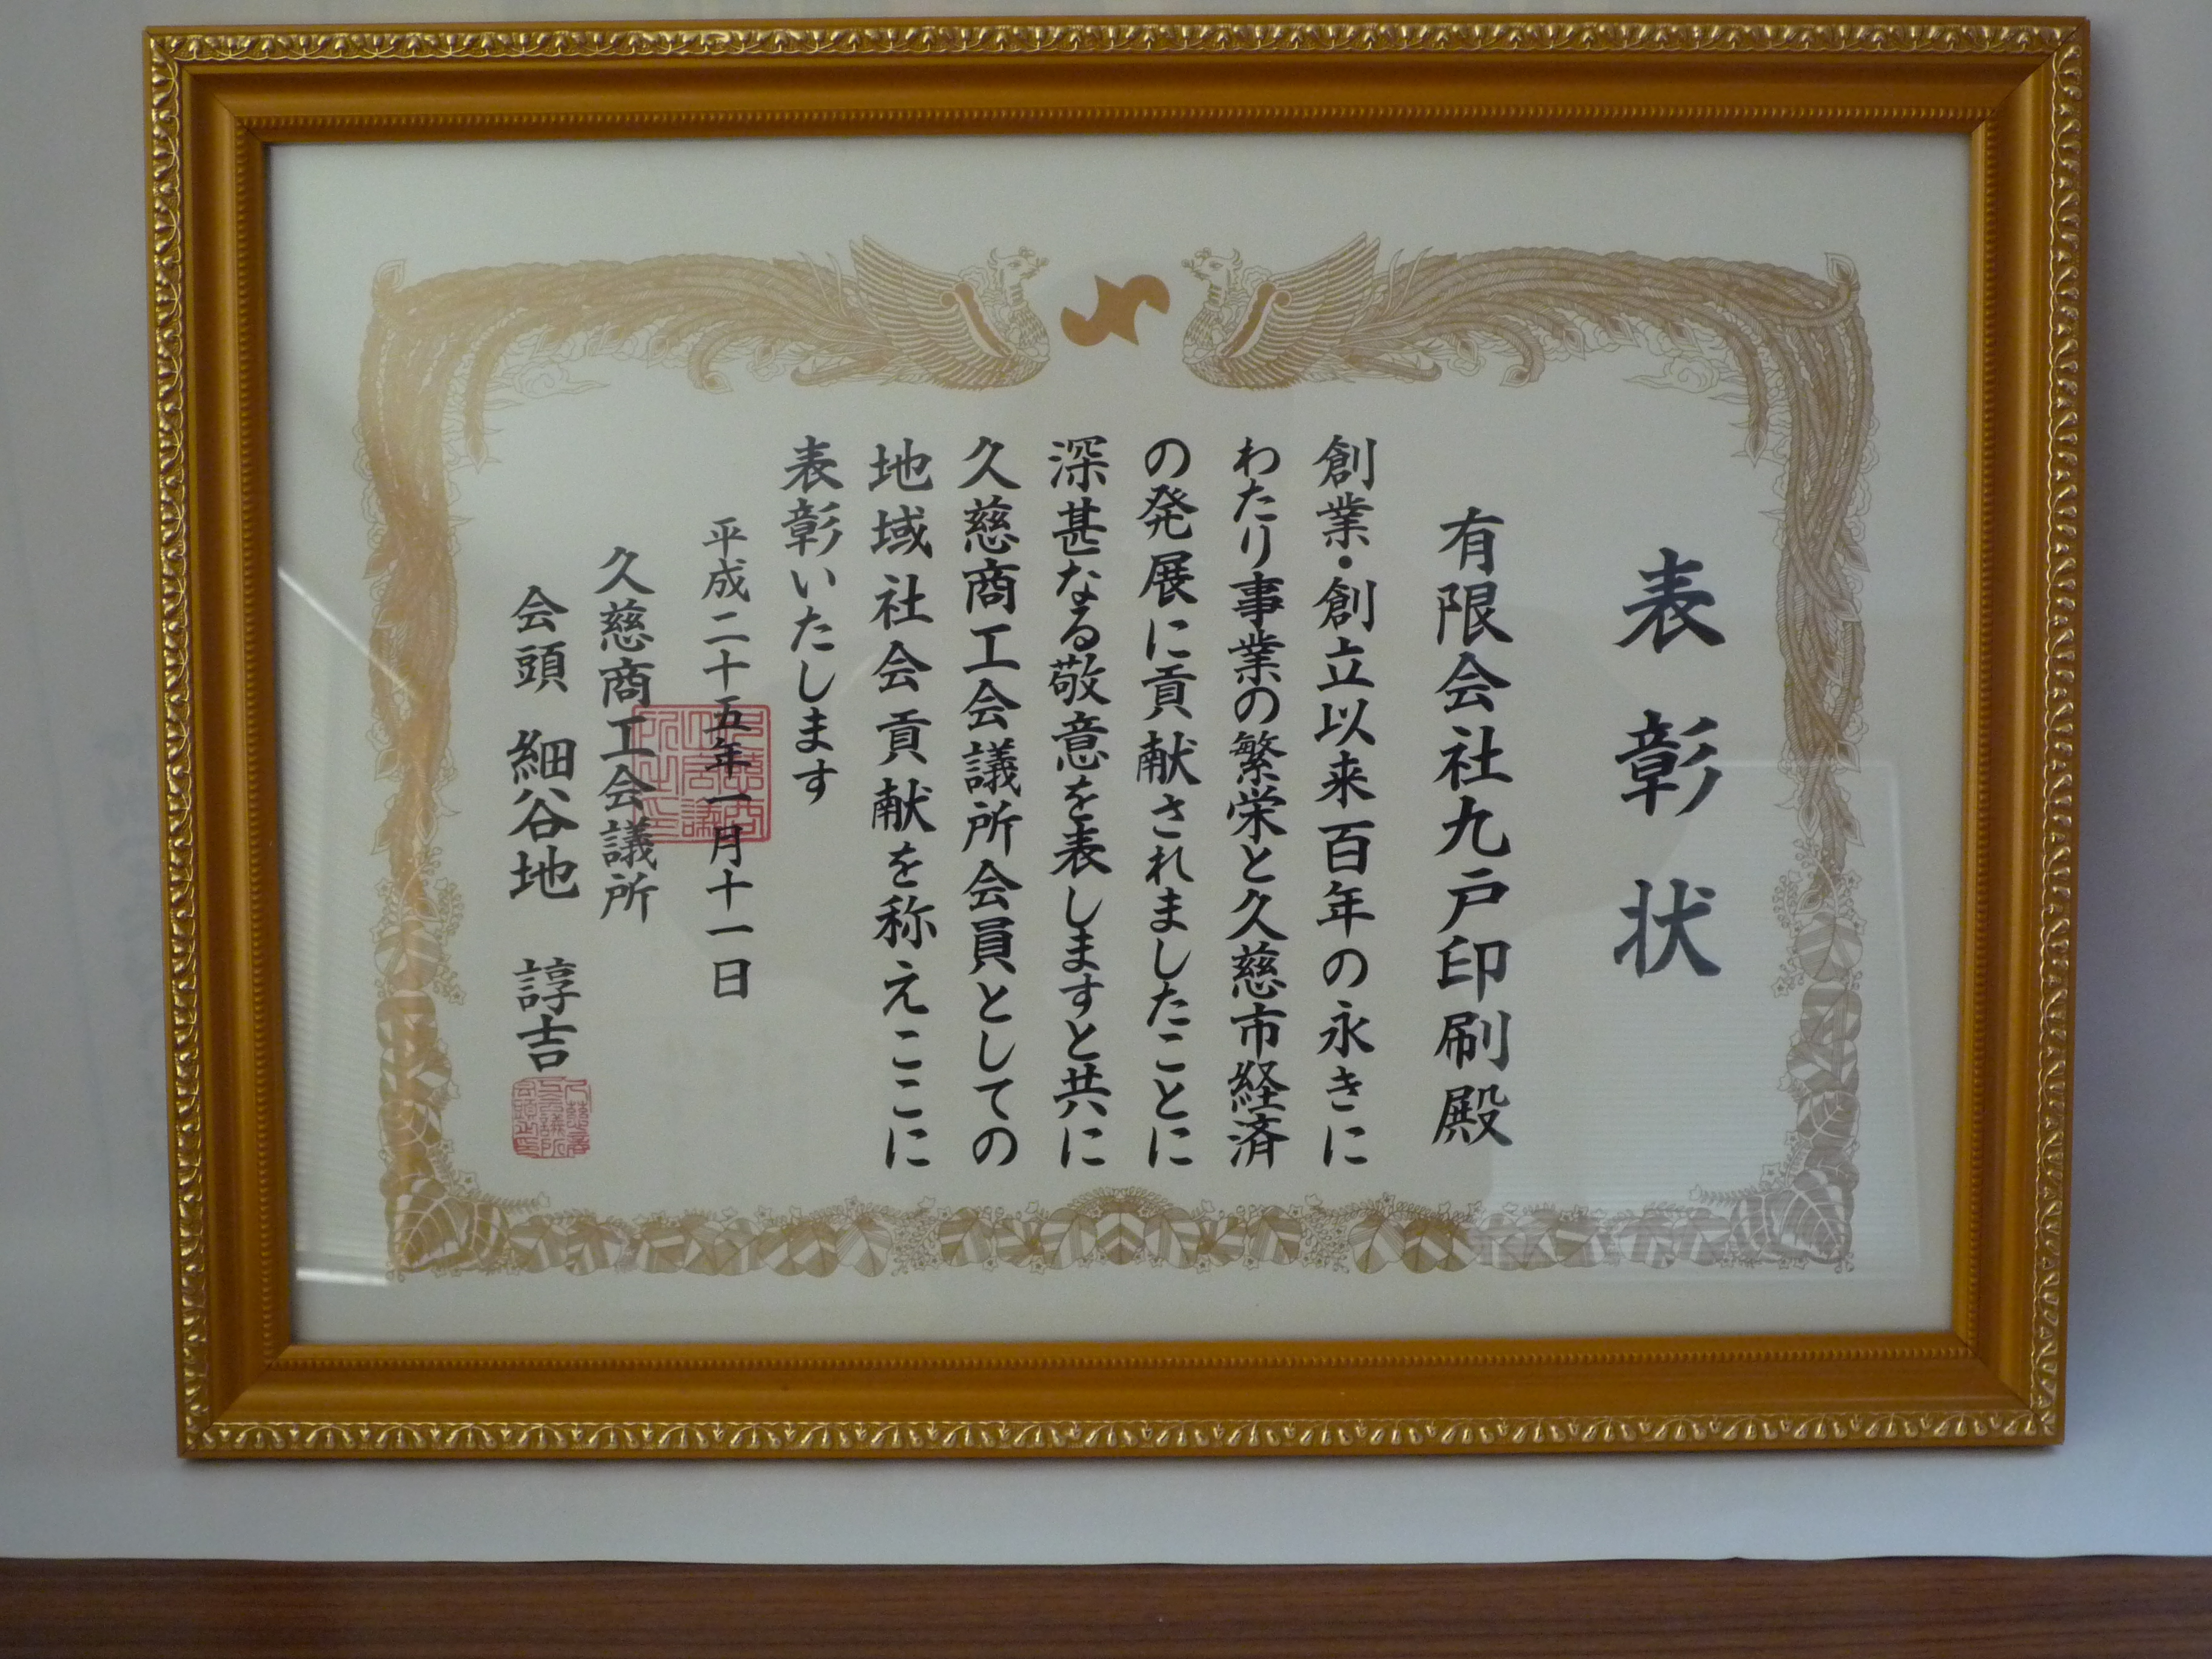 表彰状
有限会社九戸印刷殿
創業・創立以来百年の永きに
わたり事業の繁栄と久慈市経済
の発展に貢献されましたことに
深甚なる敬意を表しますと共に
久慈商工会議所会員としての
地域社会貢献を称えここに
表彰いたします
平成二十五年一月十一日
久慈商工会議所
会頭 細谷地 諄吉